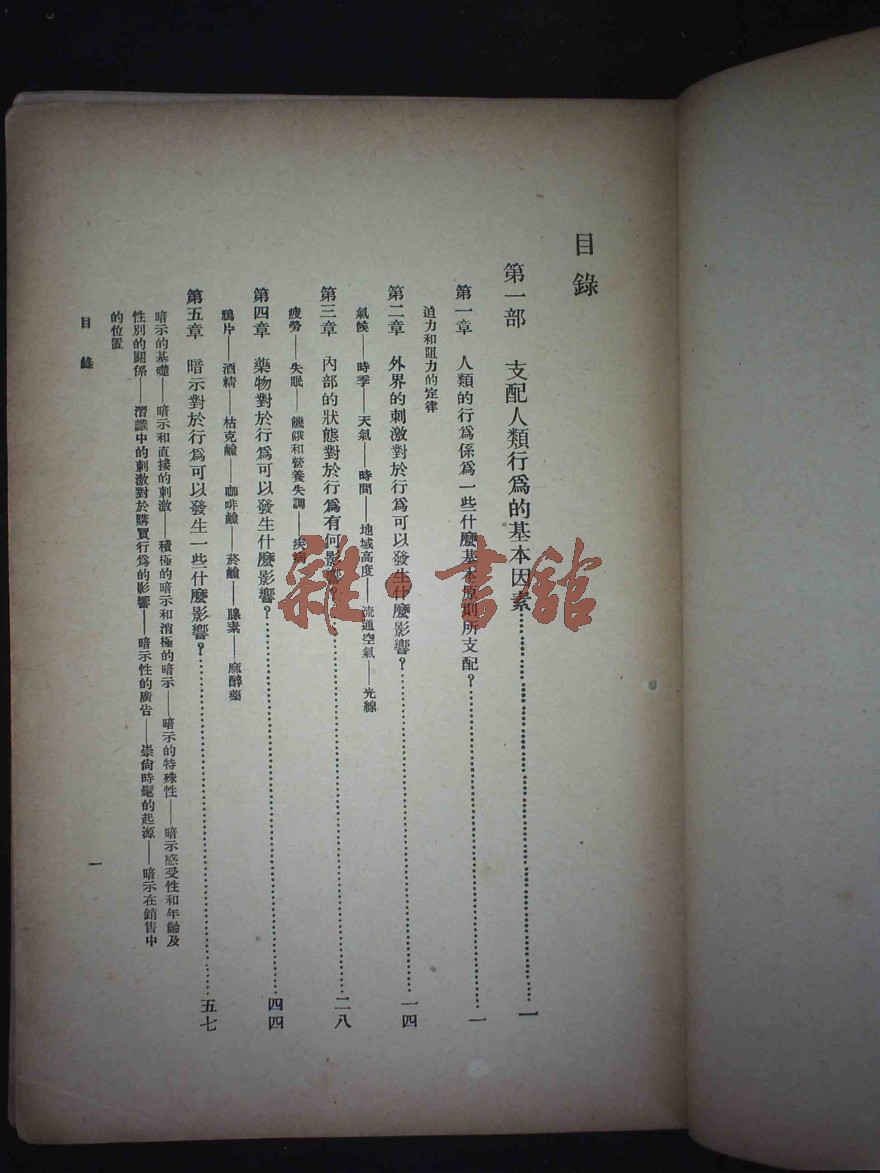 目錄
第一部 支配人類行爲的基本因素……一
第一章 人類的行爲係爲一些什麼基本原則所支配？……一
迫力和阻力的定律
第二章 外界的刺激對於行爲可以發生什麼影響？……一四
氣候——時季——天氣——時間——地域高度——流通空氣——光線
第三章 內部的狀態對於行爲有何影響？……二八
疲勞——失眠——饑餓和營養失調——疾病
第四章 藥物對於行爲可以發生什麼影響？……四四
鴉片——酒精——枯克鹼——咖啡鹼——菸鹼——腺素——麻醉藥
第五章 暗示對於行爲可以發生一些什麼影響？……五七
暗示的基礎——暗示和直接的刺激——積極的暗示和消極的暗示——暗示的特殊性——暗示感受性和年齡及
性別的關係——潛識中的刺激對於購買行爲的影響——暗示性的廣告——崇尙時髦的起源——暗示在銷售中
的位置
目錄
一
雜·書館